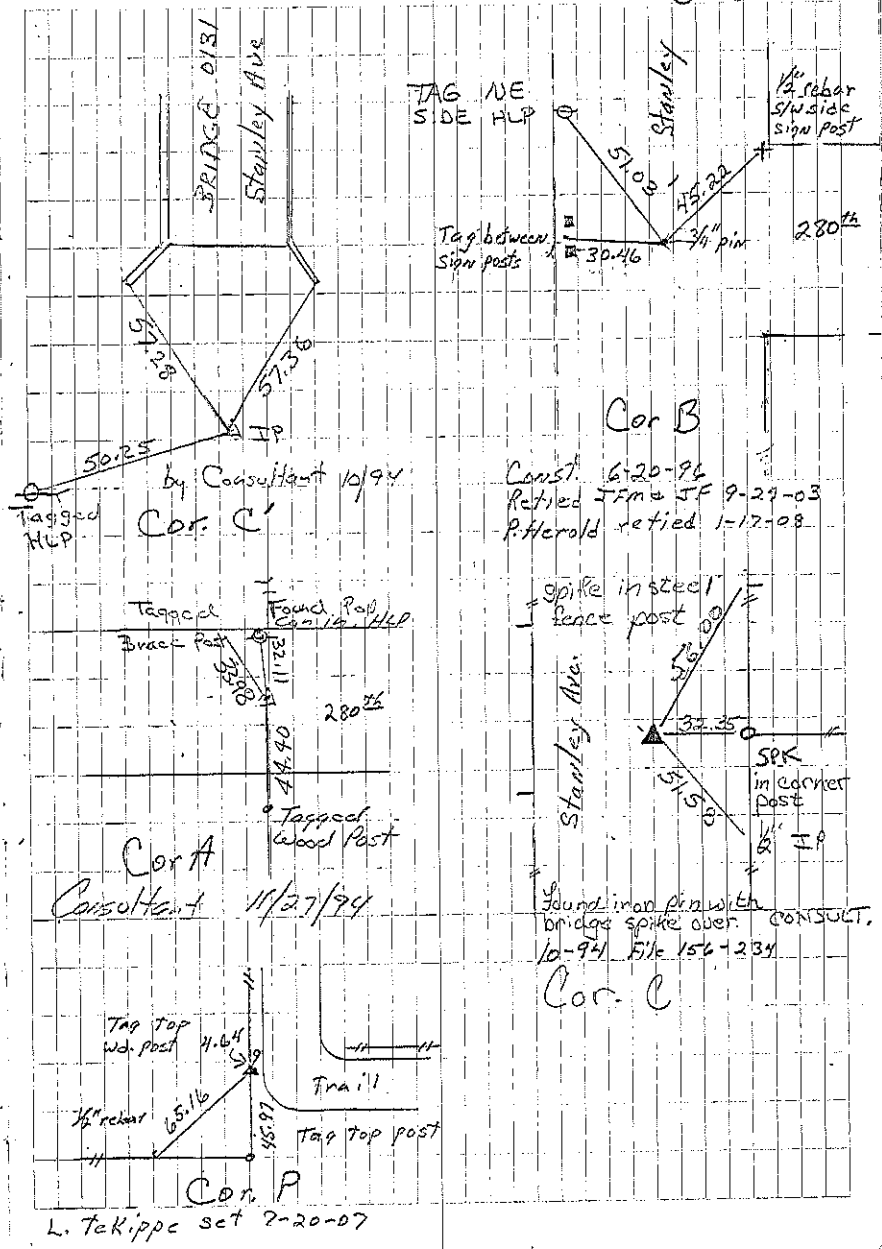 BRIDGE 0131
Stanley Ave
57.28
57.36
IP
50.25
by Consultant 10/94
Tagged
HLP
Cor. C'
TAG NE
SIDE HLP
Stanley
1/2" rebar
S/W side
sign post
51.03'
45.22
Tag between
sign posts
30.46
3/4" pin
280th
Cor B
Const. 6-20-96
Retied JFm & JF 9-29-03
P. Herold retied 1-17-08
Tagged
Brace Post
Found Pop
Can in HLP
32.11
33.98
280th
44.40
Tagged
Wood Post
Cor A
Consultant 11/27/94
spike in steel
fence post
Stanley Ave.
56.00
32.35
SPK
in corner
post
51.53
1/2" IP
found iron pin with
bridge spike over. CONSULT.
10-94 File 156-234
Cor. C
Tag top
wd. post
4.64
1/2" rebar
65.16
45.97
Traill
Tag top post
Cor. P
L. TeKippe set 7-20-07